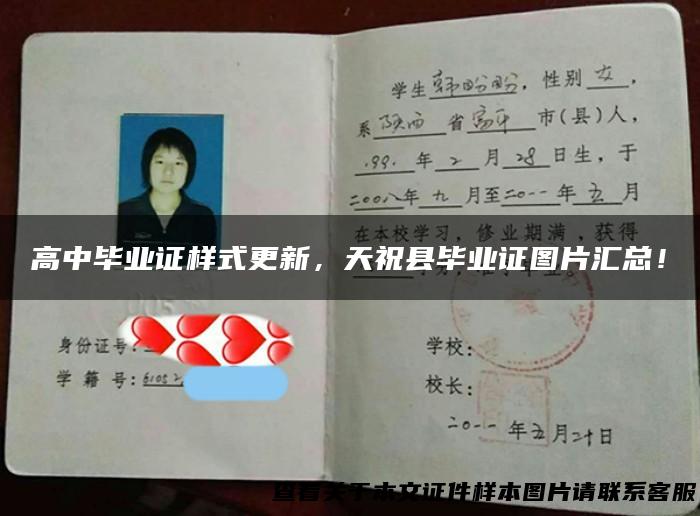 学生韩盼盼，性别女，
系陕西省富平市(县)人，
1991年2月28日生，于
二00八年九月至二0一一年五月
在本校学习，修业期满，获得
高中毕业证样式更新，天祝县毕业证图片汇总！
身份证号：
学籍号：6105
学校：
校长：
二0一一年五月二十日
查看关于本文证件样本图片请联系客服